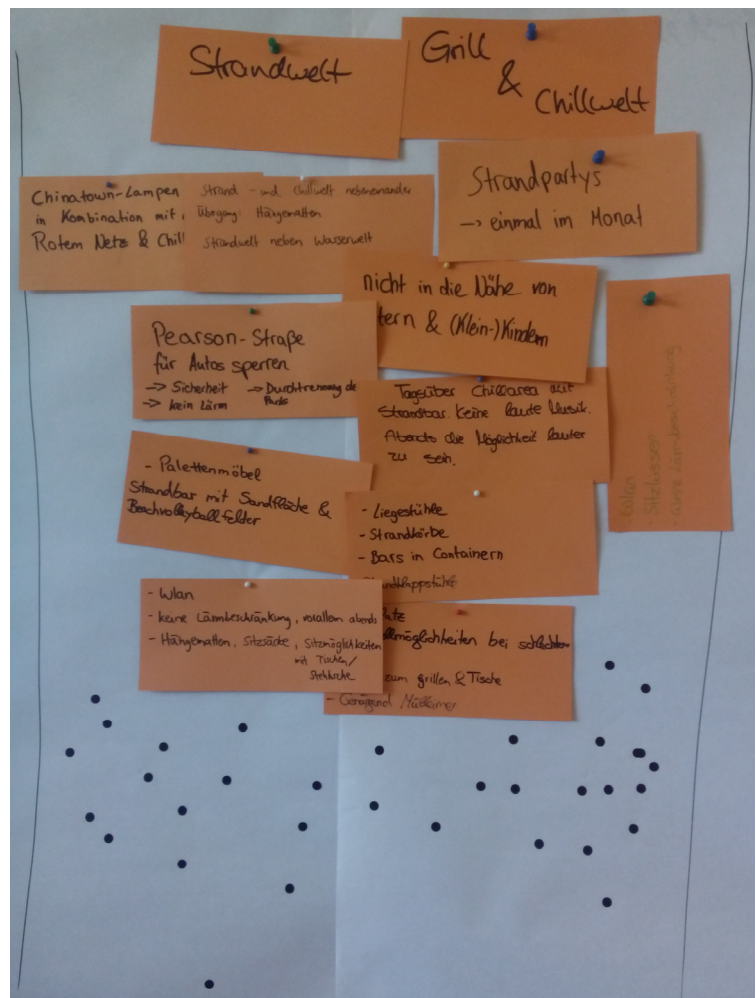 Strandwelt
Grill
&
Chillwelt
Strandpartys
-> einmal im Monat
Chinatown-Lampen
in Kombination mit
Rotem Netz & Chill
Strand- und Chillwelt nebeneinander
Übergang: Hängematten
Strandwelt neben Wasserwelt
nicht in die Nähe von
tern & (Klein-)Kindern
Pearson-Straße
für Autos sperren
-> Sicherheit -> Durchtrennung de
-> kein Lärm Parks
Tagsüber Chillarea mit
Strandbar. Keine laute Musik.
Abends die Möglichkeit lauter
zu sein.
Wlan
- Sitzkissen
- Palettenmöbel
Strandbar mit Sandfläche &
Beachvolleyballfelder
- Liegestühle
- Strandkörbe
- Bars in Containern
- Wlan
- keine Lärmbeschränkung, vorallem abends
- Hängematten, Sitzsäcke, Sitzmöglichkeiten
mit Tischen/
llmöglichkeiten bei schlechtem
zum grillen & Tische
- Genügend Mülleimer